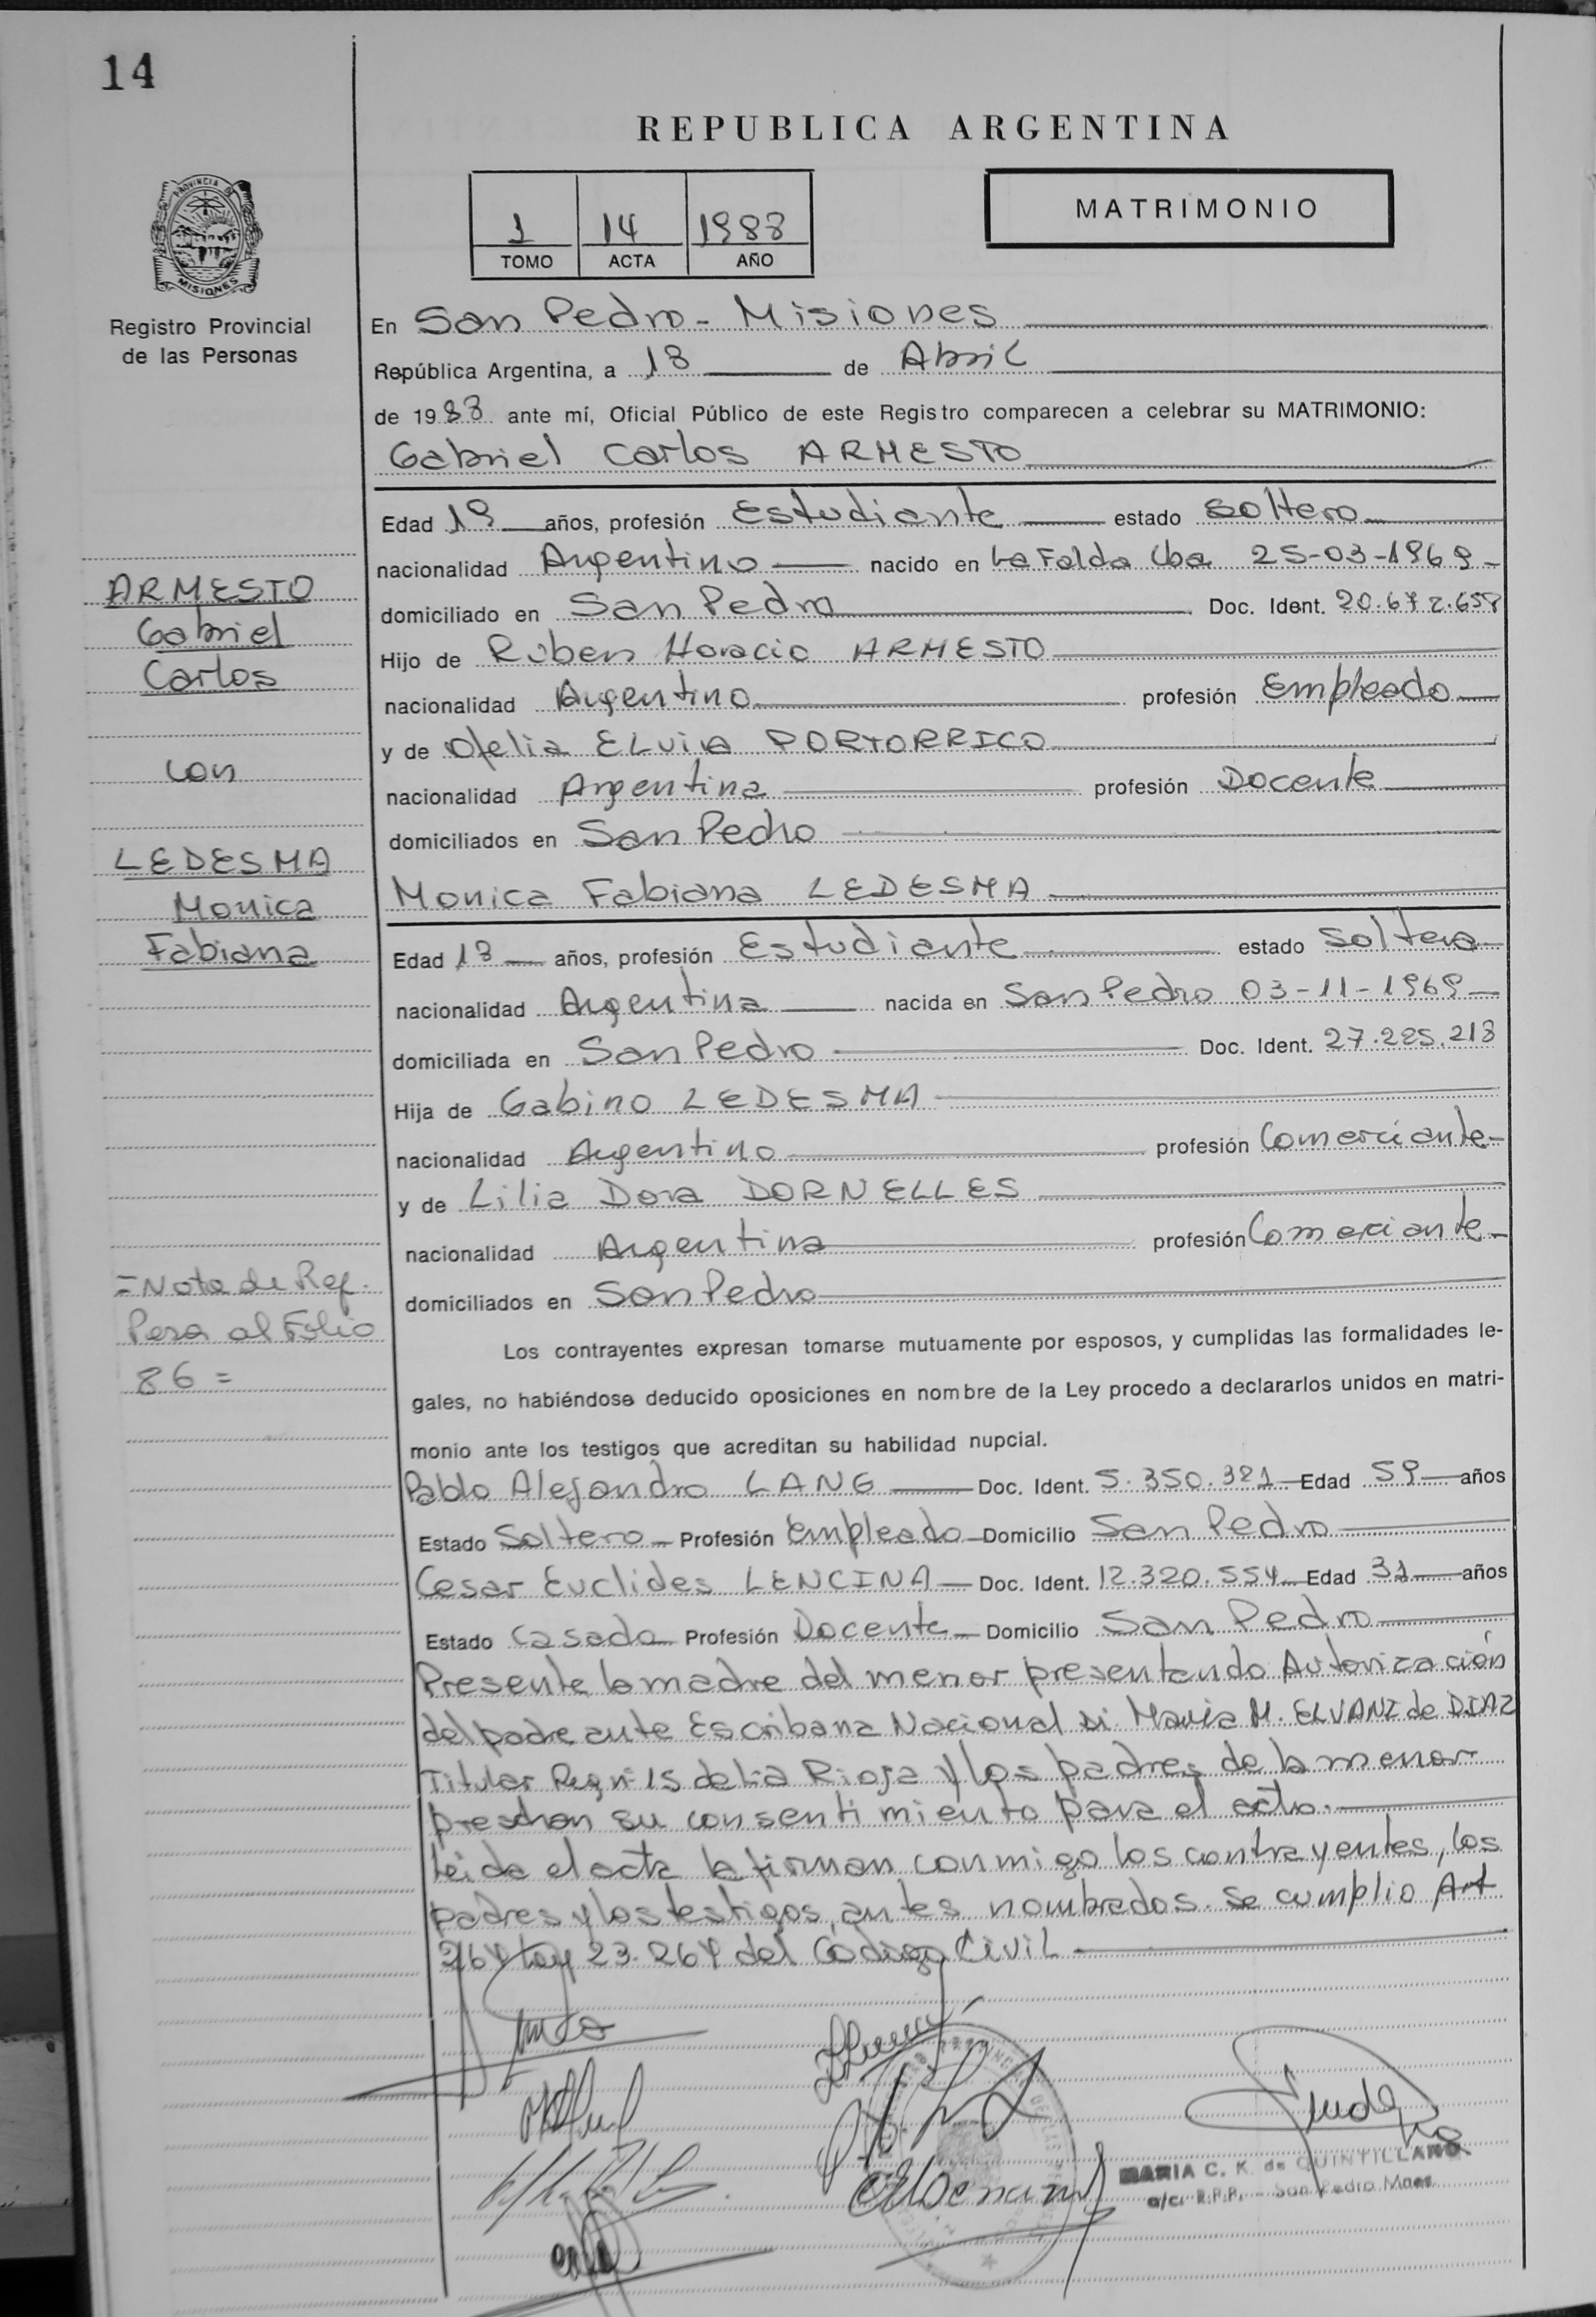 14
REPUBLICA ARGENTINA
PROVINCIA DE
MISIONES
Registro Provincial
de las Personas
1 14 1988
TOMO ACTA AÑO
MATRIMONIO
En San Pedro - Misiones
República Argentina, a 18 de Abril
de 1988 ante mí, Oficial Público de este Registro comparecen a celebrar su MATRIMONIO:
Gabriel Carlos ARMESTO
Edad 19 años, profesión Estudiante estado soltero
nacionalidad Argentino nacido en La Falda Cba 25-03-1969-
domiciliado en San Pedro Doc. Ident. 20.672.658
Hijo de Rúben Horacio ARMESTO
nacionalidad Argentino profesión Empleado
y de Ofelia ELvira PORTORRICO
nacionalidad Argentina profesión Docente
domiciliados en San Pedro
Monica Fabiana LEDESMA
Edad 18 años, profesión Estudiante estado soltera
nacionalidad Argentina nacida en San Pedro 03-11-1969-
domiciliada en San Pedro Doc. Ident. 27.285.218
Hija de Gabino LEDESMA
nacionalidad Argentino profesión Comerciante-
y de Lilia Dora DORNELLES
nacionalidad Argentina profesión Comerciante-
domiciliados en San Pedro
ARMESTO
Gabriel
Carlos
con
LEDESMA
Monica
Fabiana
=Nota de Ref.
Pasa al Folio
86=
Los contrayentes expresan tomarse mutuamente por esposos, y cumplidas las formalidades le-
gales, no habiéndose deducido oposiciones en nombre de la Ley procedo a declararlos unidos en matri-
monio ante los testigos que acreditan su habilidad nupcial.
Pablo Alejandro LANG Doc. Ident. 5.350.321 Edad 59 años
Estado Soltero Profesión Empleado Domicilio San Pedro
Cesar Euclides LENCINA Doc. Ident. 12.320.554 Edad 31 años
Estado Casado Profesión Docente Domicilio San Pedro
Presente la madre del menor presentando Autorización
del padre ante Escribana Nacional Maria M. ELVANI de DIAZ
Titular Reg nº 15 de La Rioja y los padres de la menor
prestan su consentimiento para el acto.
Leida el acta la firman conmigo los contrayentes, los
padres y los testigos, antes nombrados. Se cumplio Art
264 Ley 23.264 del Código Civil
MARIA C. K. de QUINTILLANO
a/c. R.P.P. - San Pedro Mnes.